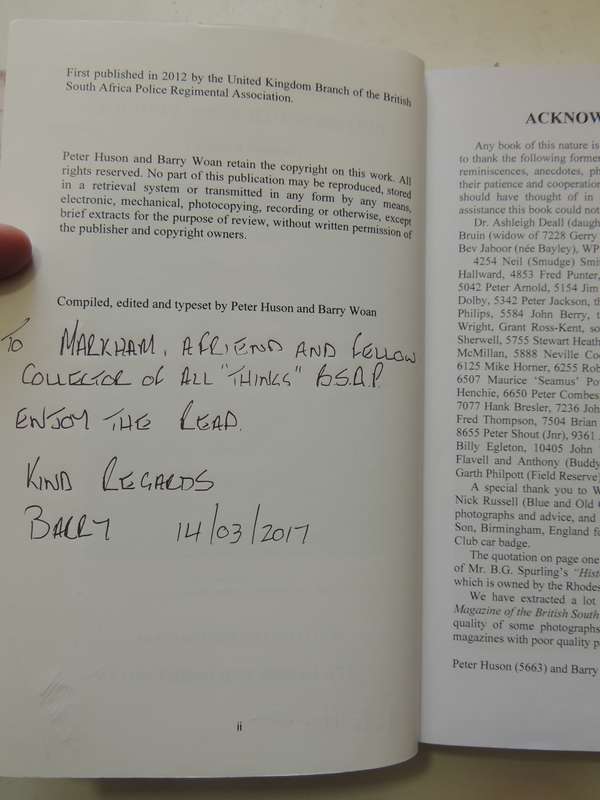 First published in 2012 by the United Kingdom Branch of the British
South Africa Police Regimental Association.
Peter Huson and Barry Woan retain the copyright on this work. All
rights reserved. No part of this publication may be reproduced, stored
in a retrieval system or transmitted in any form by any means,
electronic, mechanical, photocopying, recording or otherwise, except
brief extracts for the purpose of review, without written permission of
the publisher and copyright owners.
Compiled, edited and typeset by Peter Huson and Barry Woan
TO MARKHAM, A FRIEND AND FELLOW
COLLECTOR OF ALL "THINGS" B.S.A.P.
ENJOY THE READ.
KIND REGARDS
BARRY 14/03/2017
ii
ACKNOW
Any book of this nature is
to thank the following former
reminiscences, anecdotes, ph
their patience and cooperation
should have thought of in
assistance this book could not
Dr. Ashleigh Deall (daugh
Bruin (widow of 7228 Gerry
Bev Jaboor (née Bayley), WP
4254 Neil (Smudge) Smi
Hallward, 4853 Fred Punter,
5042 Peter Arnold, 5154 Jim
Dolby, 5342 Peter Jackson, th
Philips, 5584 John Berry, t
Wright, Grant Ross-Kent, so
Sherwell, 5755 Stewart Heath
McMillan, 5888 Neville Coo
6125 Mike Horner, 6255 Rob
6507 Maurice 'Seamus' Po
Henchie, 6650 Peter Combes
7077 Hank Bresler, 7236 Joh
Fred Thompson, 7504 Brian
8655 Peter Shout (Jnr), 9361
Billy Egleton, 10405 John
Flavell and Anthony (Buddy
Garth Philpott (Field Reserve)
A special thank you to W
Nick Russell (Blue and Old
photographs and advice, and
Son, Birmingham, England fo
Club car badge.
The quotation on page one
of Mr. B.G. Spurling's "Hist
which is owned by the Rhodes
We have extracted a lot
Magazine of the British South
quality of some photographs
magazines with poor quality p
Peter Huson (5663) and Barry